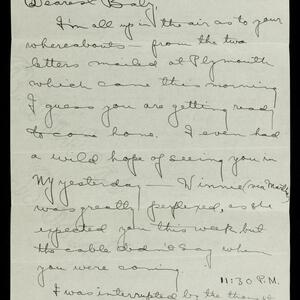 Dearest Baly,
I'm all up in the air as to your
whereabouts – from the two
letters mailed at Plymouth
which came this morning
I guess you are getting ready
to come home. I even had
a wild hope of seeing you in
NY yesterday – Winnie (nee
was greatly perplexed, as she
expected you this week but
the cable didn't say when
you were coming.
11:30 P.M.
I was interrupted by the